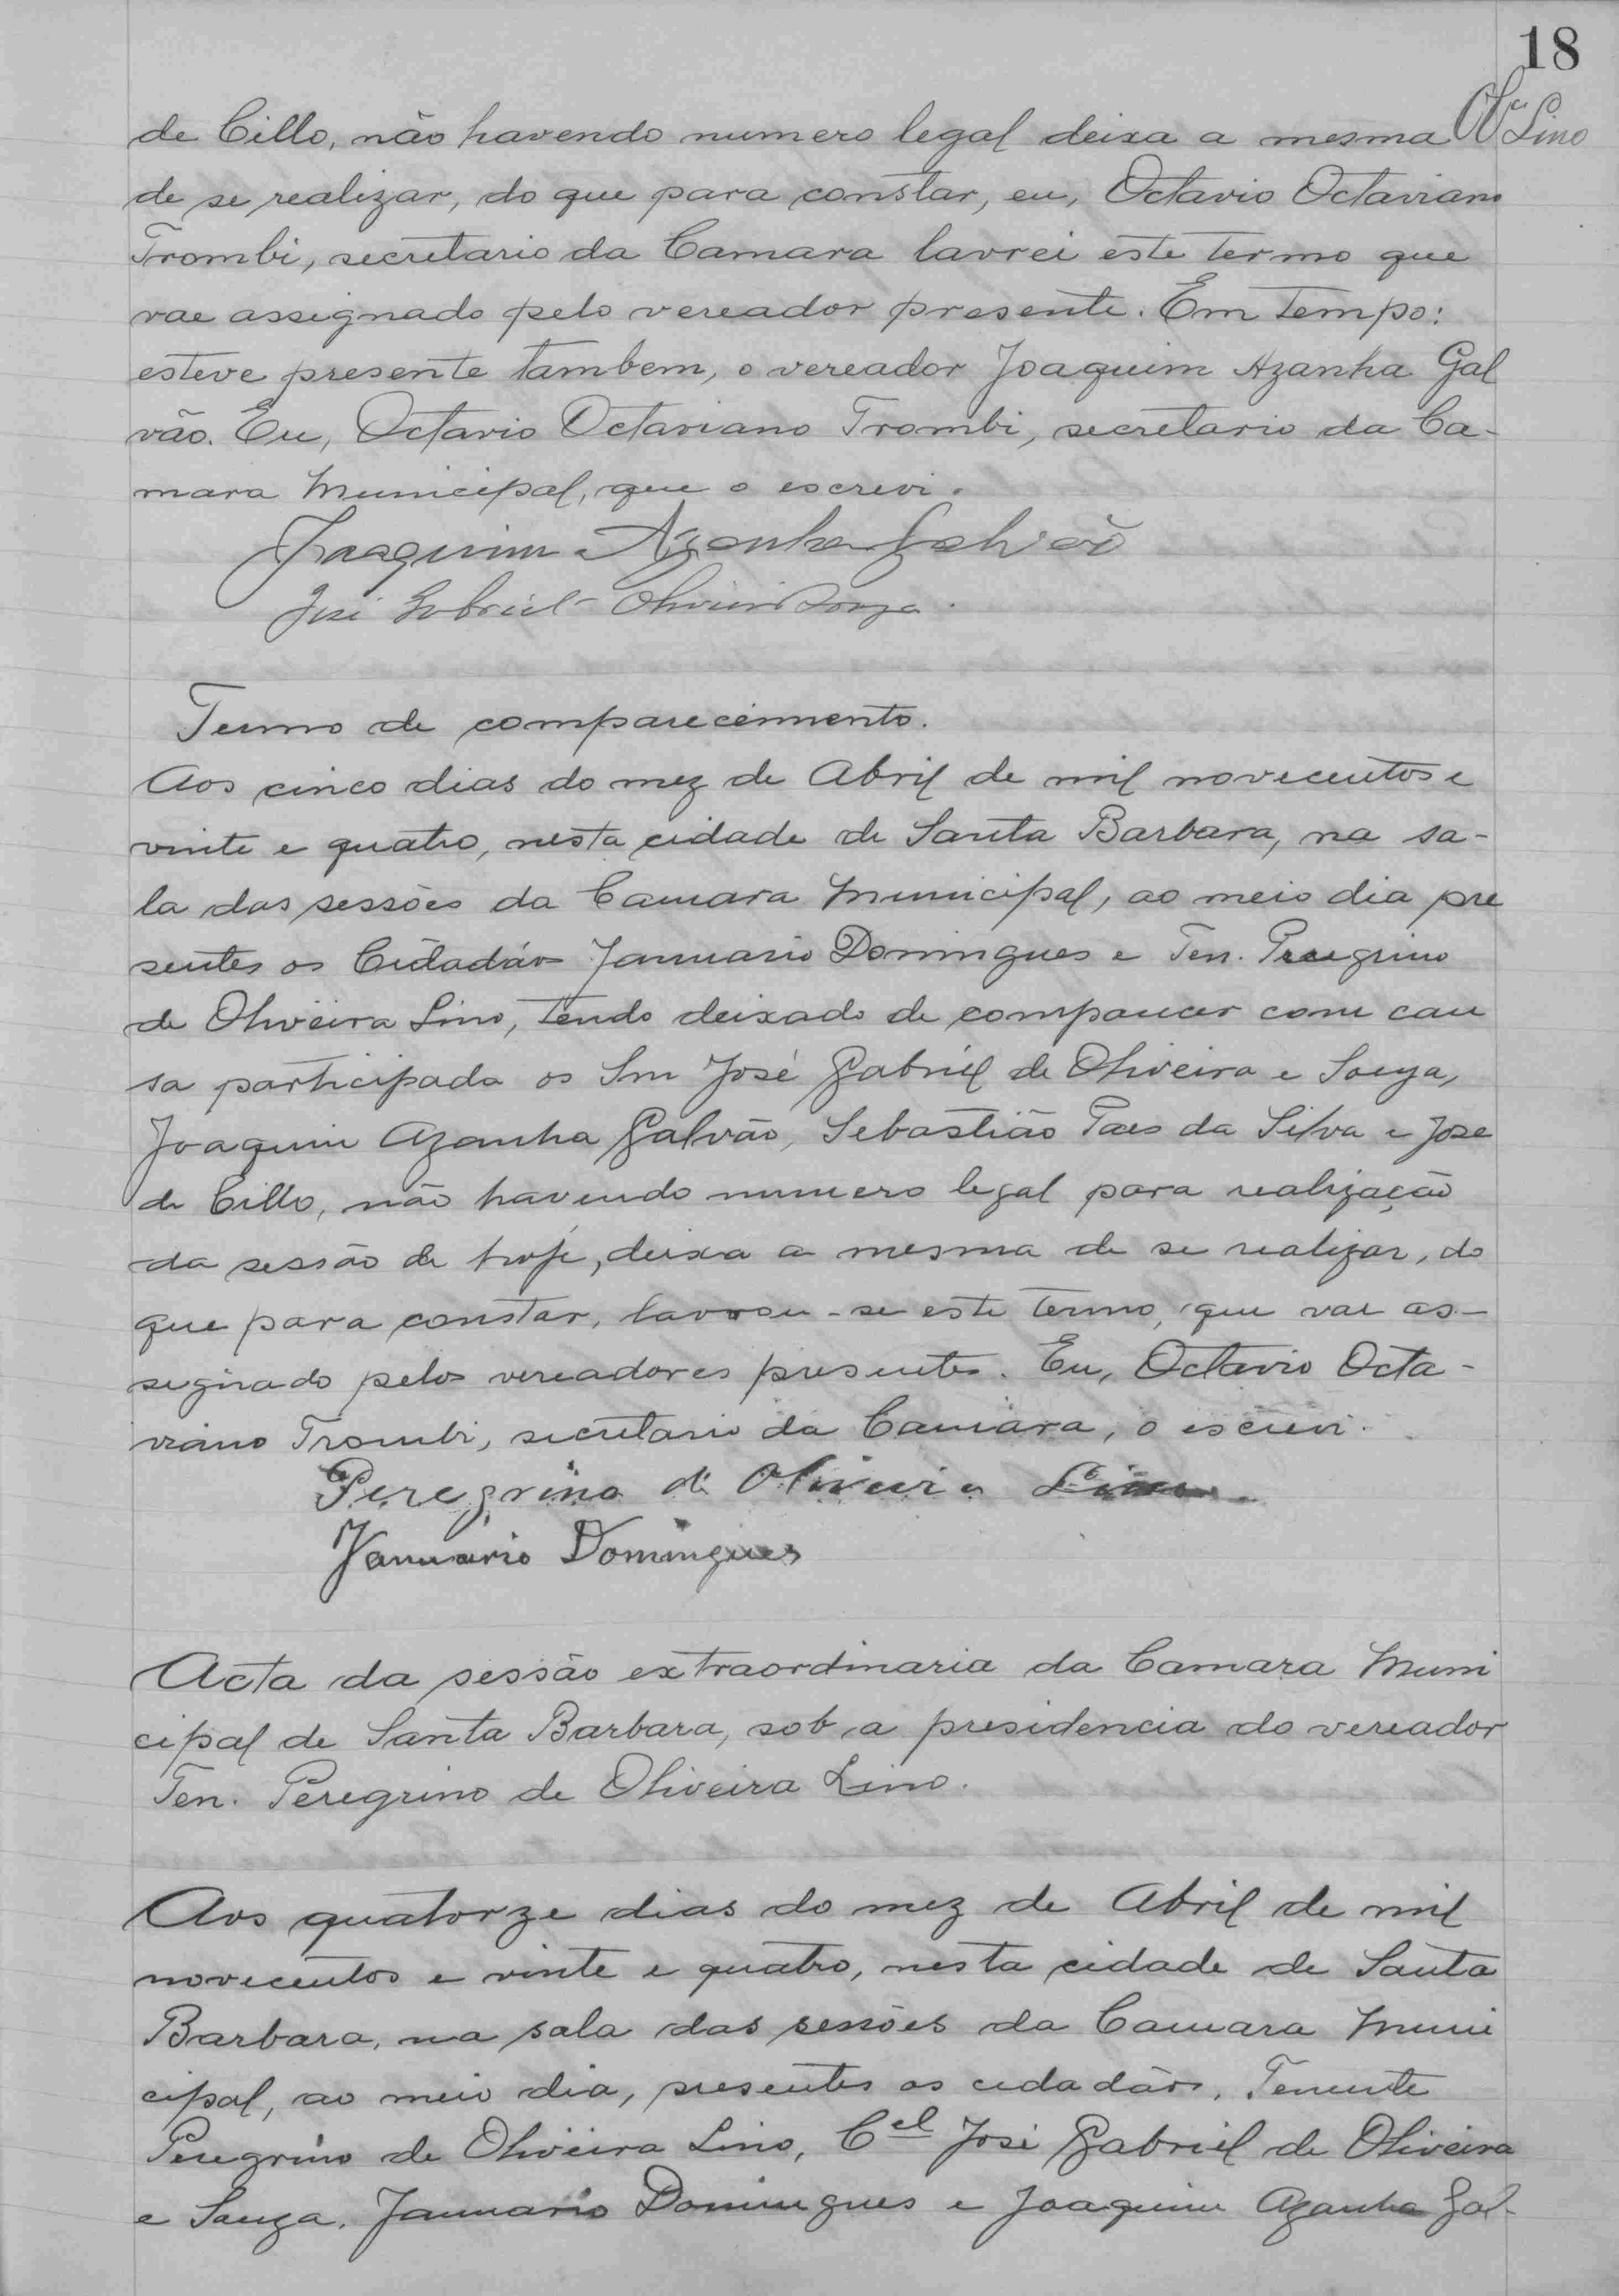 18
Ol.ra Lino
de Cillo, não havendo numero legal deixa a mesma
de se realizar, do que para constar, eu, Octavio Octaviano
Trombi, secretario da Camara lavrei este termo que
vae assignado pelo vereador presente. Em tempo:
esteve presente tambem, o vereador Joaquim Azanha Gal
vão. Eu, Octavio Octaviano Trombi, secretario da Ca-
mara Municipal, que o escrevi.
Joaquim Azanha Galvão
José Gabriel Oliveira Souza.
Termo de comparecimento.
Aos cinco dias do mez de Abril de mil novecentos e
vinte e quatro, nesta cidade de Santa Barbara, na sa-
la das sessões da Camara Municipal, ao meio dia pre
sentes os Cidadãos Januario Domingues e Ten. Peregrino
de Oliveira Lino, tendo deixado de comparecer com cau
sa participada os Snrs José Gabriel de Oliveira e Souza,
Joaquim Azanha Galvão, Sebastião Paes da Silva e José
de Cillo, não havendo numero legal para realização
da sessão de hoje, deixa a mesma de se realizar, do
que para constar, lavrou-se este termo, que vae as-
signado pelos vereadores presentes. Eu, Octavio Octa-
viano Trombi, secretario da Camara, o escrevi.
Peregrino de Oliveira Lino
Januario Domingues
Acta da sessão extraordinaria da Camara Muni
cipal de Santa Barbara, sob a presidencia do vereador
Ten. Peregrino de Oliveira Lino.
Aos quatorze dias do mez de Abril de mil
novecentos e vinte e quatro, nesta cidade de Santa
Barbara, na sala das sessões da Camara Muni
cipal, ao meio dia, presentes os cidadãos, Tenente
Peregrino de Oliveira Lino, Cel José Gabriel de Oliveira
e Souza, Januario Domingues e Joaquim Azanha Gal-